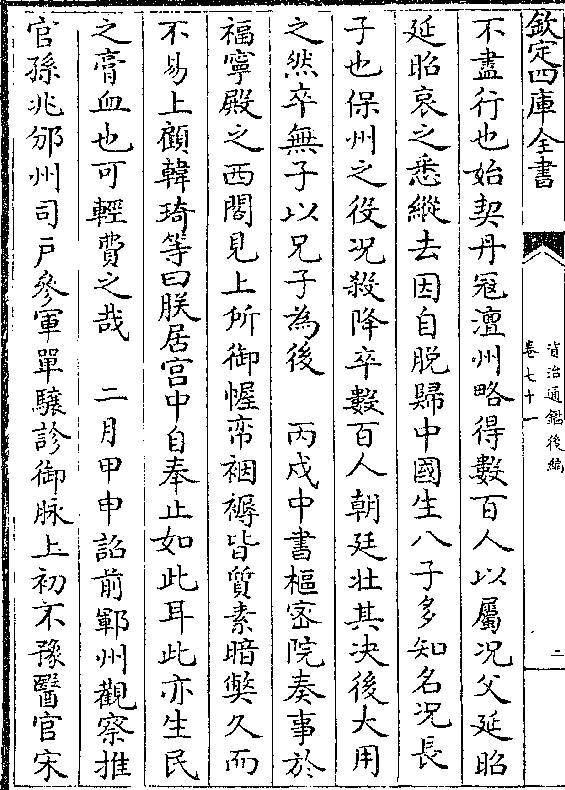 欽定四庫全書
資治通鑑後編
卷七十一
二
不盡行也始契丹冦澶州略得數百人以屬况父延昭
延昭哀之悉縱去因自脱歸中國生八子多知名况長
子也保州之役况殺降卒數百人朝廷壯其決後大用
之然卒無子以兄子為後　丙戍中書樞宻院奏事於
福寧殿之西閤見上所御幄帟裀褥皆質素暗獘久而
不易上顧韓琦等曰朕居宫中自奉止如此耳此亦生民
之膏血也可輕費之哉　二月甲申詔前鄆州觀察推
官孫兆邠州司戸參軍單驤診御脉上初不豫醫官宋